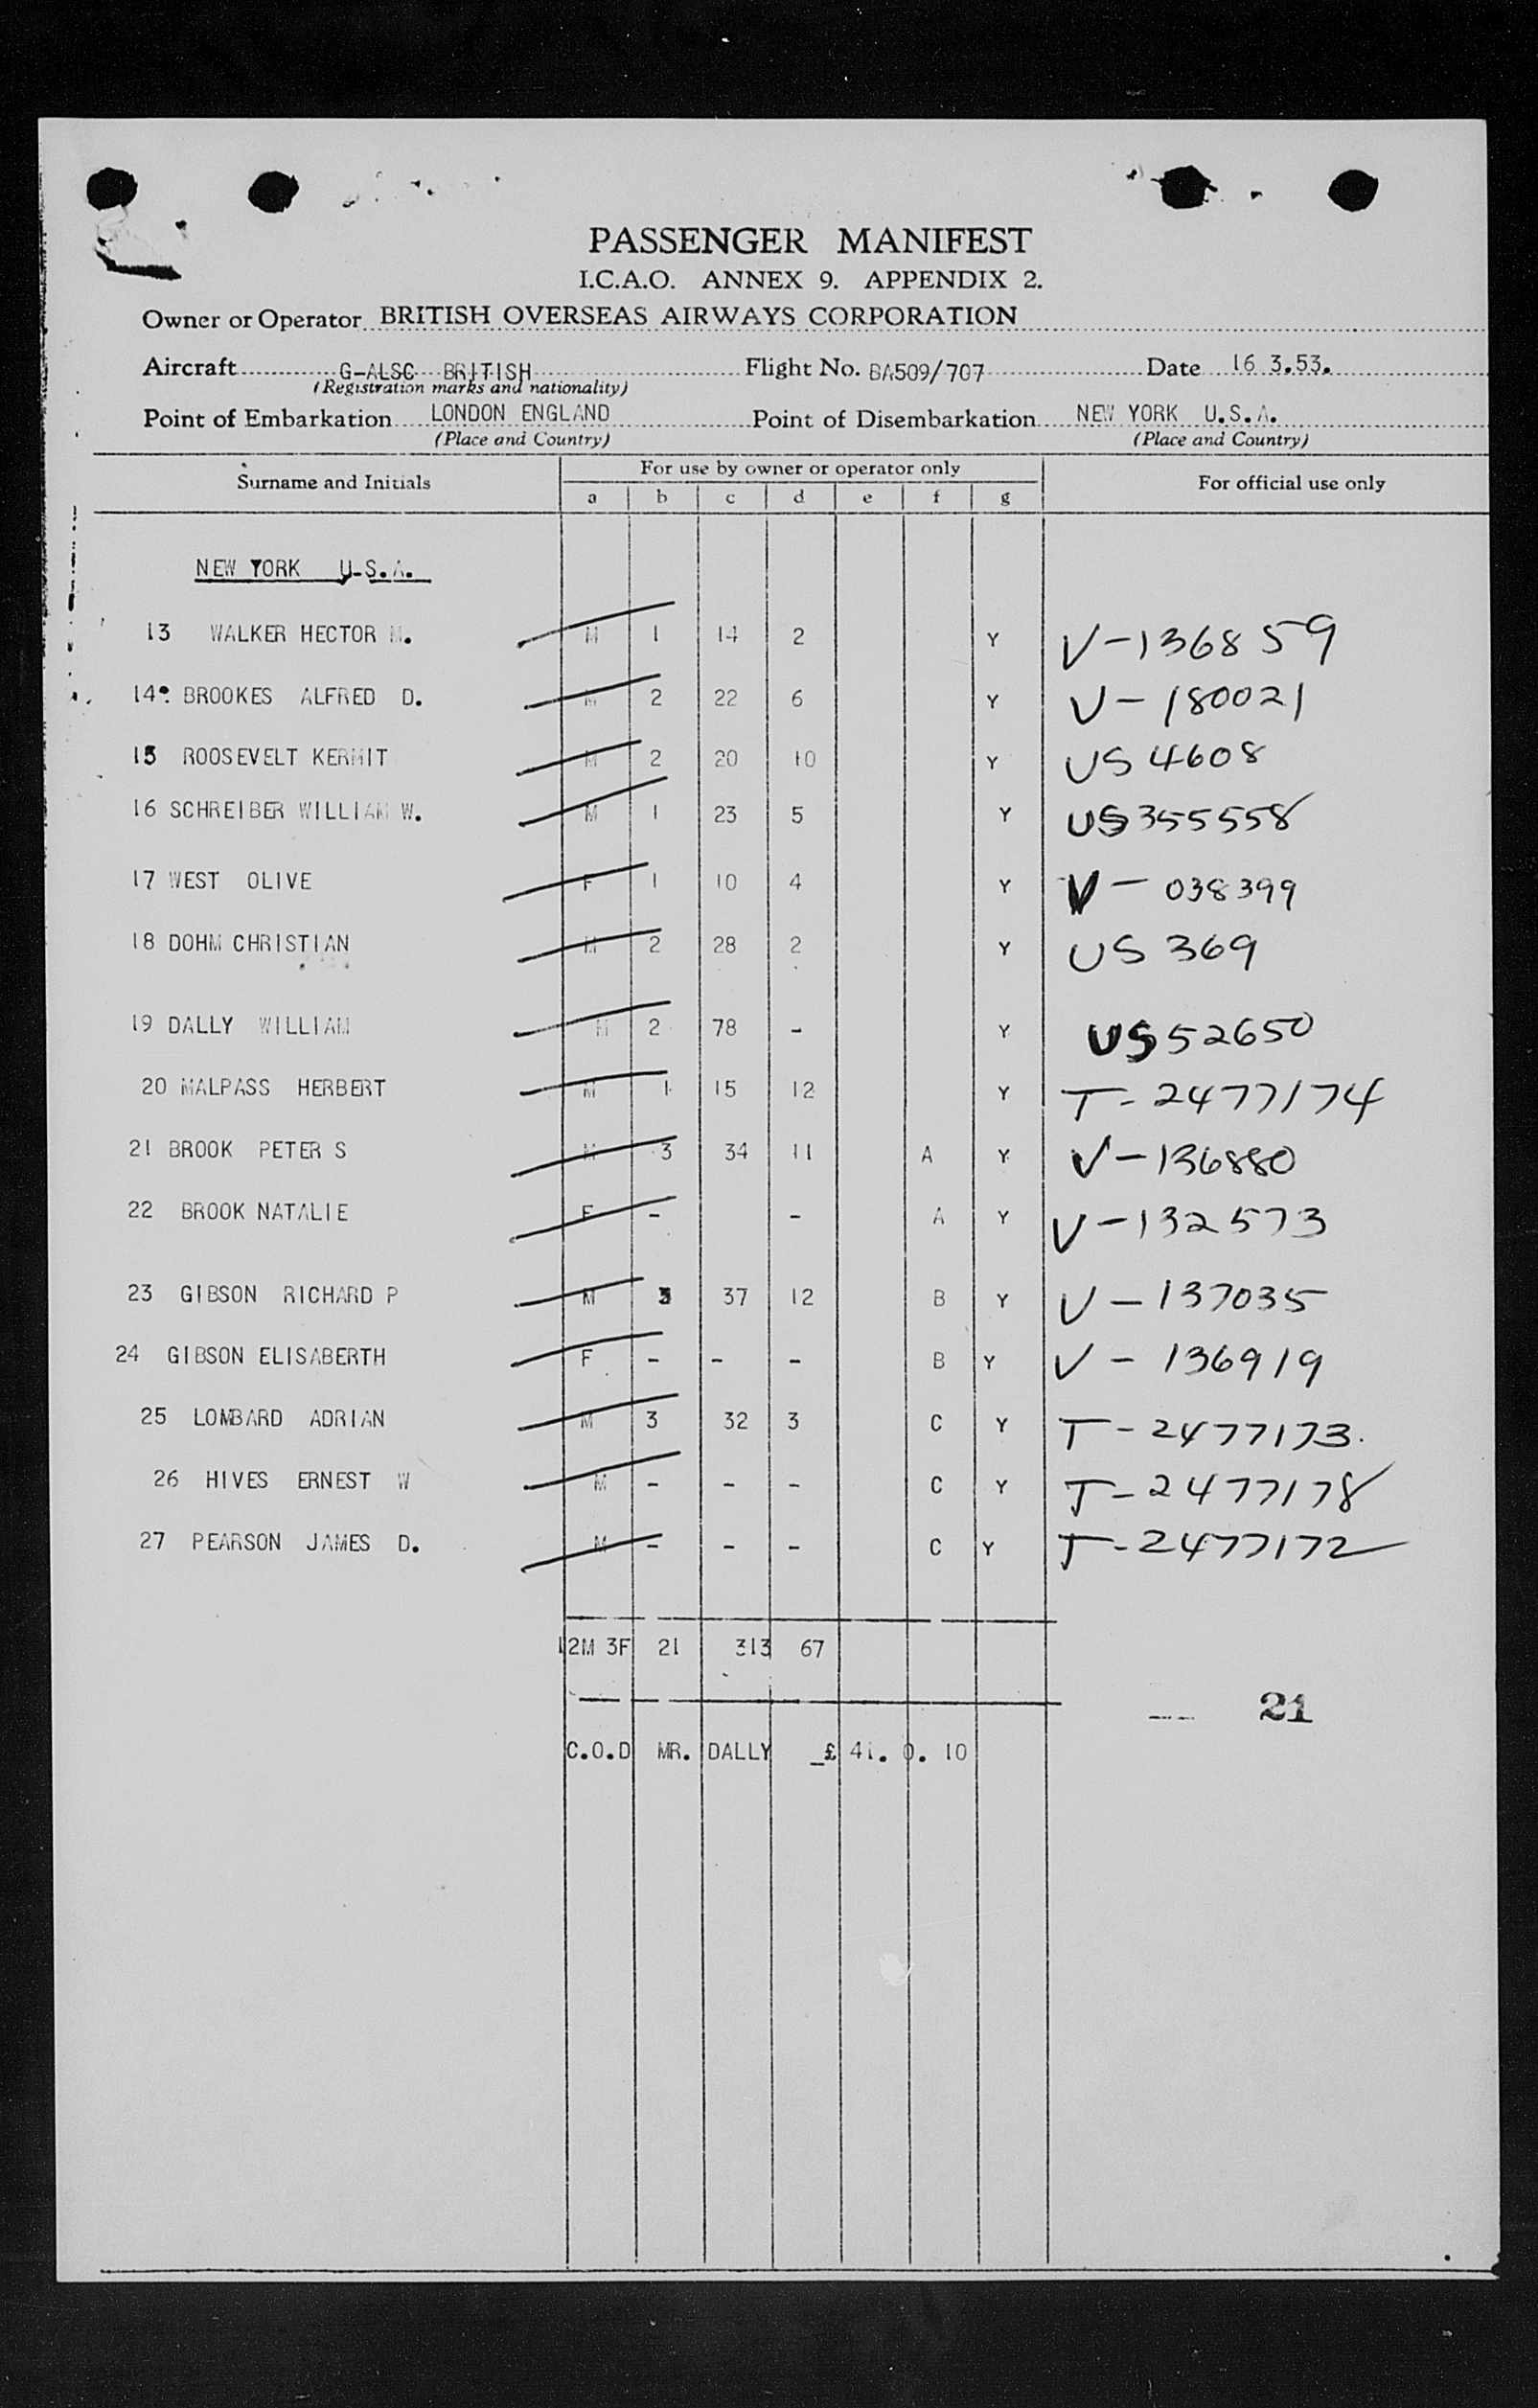 PASSENGER MANIFEST
I.C.A.O. ANNEX 9. APPENDIX 2.
Owner or Operator BRITISH OVERSEAS AIRWAYS CORPORATION
Aircraft G-ALSC BRITISH Flight No. BA509/707 Date 16 3.53.
(Registration marks and nationality)
Point of Embarkation LONDON ENGLAND Point of Disembarkation NEW YORK U.S.A.
(Place and Country) (Place and Country)
Surname and Initials For use by owner or operator only For official use only
a b c d e f g
NEW YORK U.S.A.
13 WALKER HECTOR M. M 1 14 2 Y V-136859
14. BROOKES ALFRED D. M 2 22 6 Y V-180021
15 ROOSEVELT KERMIT M 2 20 10 Y US 4608
16 SCHREIBER WILLIAM W. M 1 23 5 Y US 355558
17 WEST OLIVE F 1 10 4 Y V-038399
18 DOHM CHRISTIAN M 2 28 2 Y US 369
19 DALLY WILLIAM M 2 78 - Y US 52650
20 MALPASS HERBERT M 1 15 12 Y T-2477174
21 BROOK PETER S M 3 34 11 A Y V-136880
22 BROOK NATALIE F - - A Y V-132573
23 GIBSON RICHARD P M 3 37 12 B Y V-137035
24 GIBSON ELISABERTH F - - - B Y V-136919
25 LOMBARD ADRIAN M 3 32 3 C Y T-2477173.
26 HIVES ERNEST W M - - - C Y T-2477178
27 PEARSON JAMES D. M - - - C Y T-2477172
12M 3F 21 313 67
21
C.O.D MR. DALLY £ 41. 0. 10